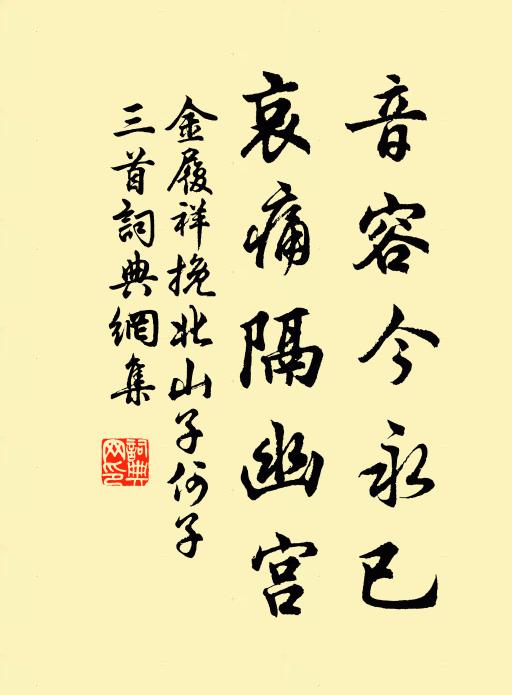 音容今永已
哀痛隔幽宫
金履祥挽北山子何子
三首詞典網集
詞典網印